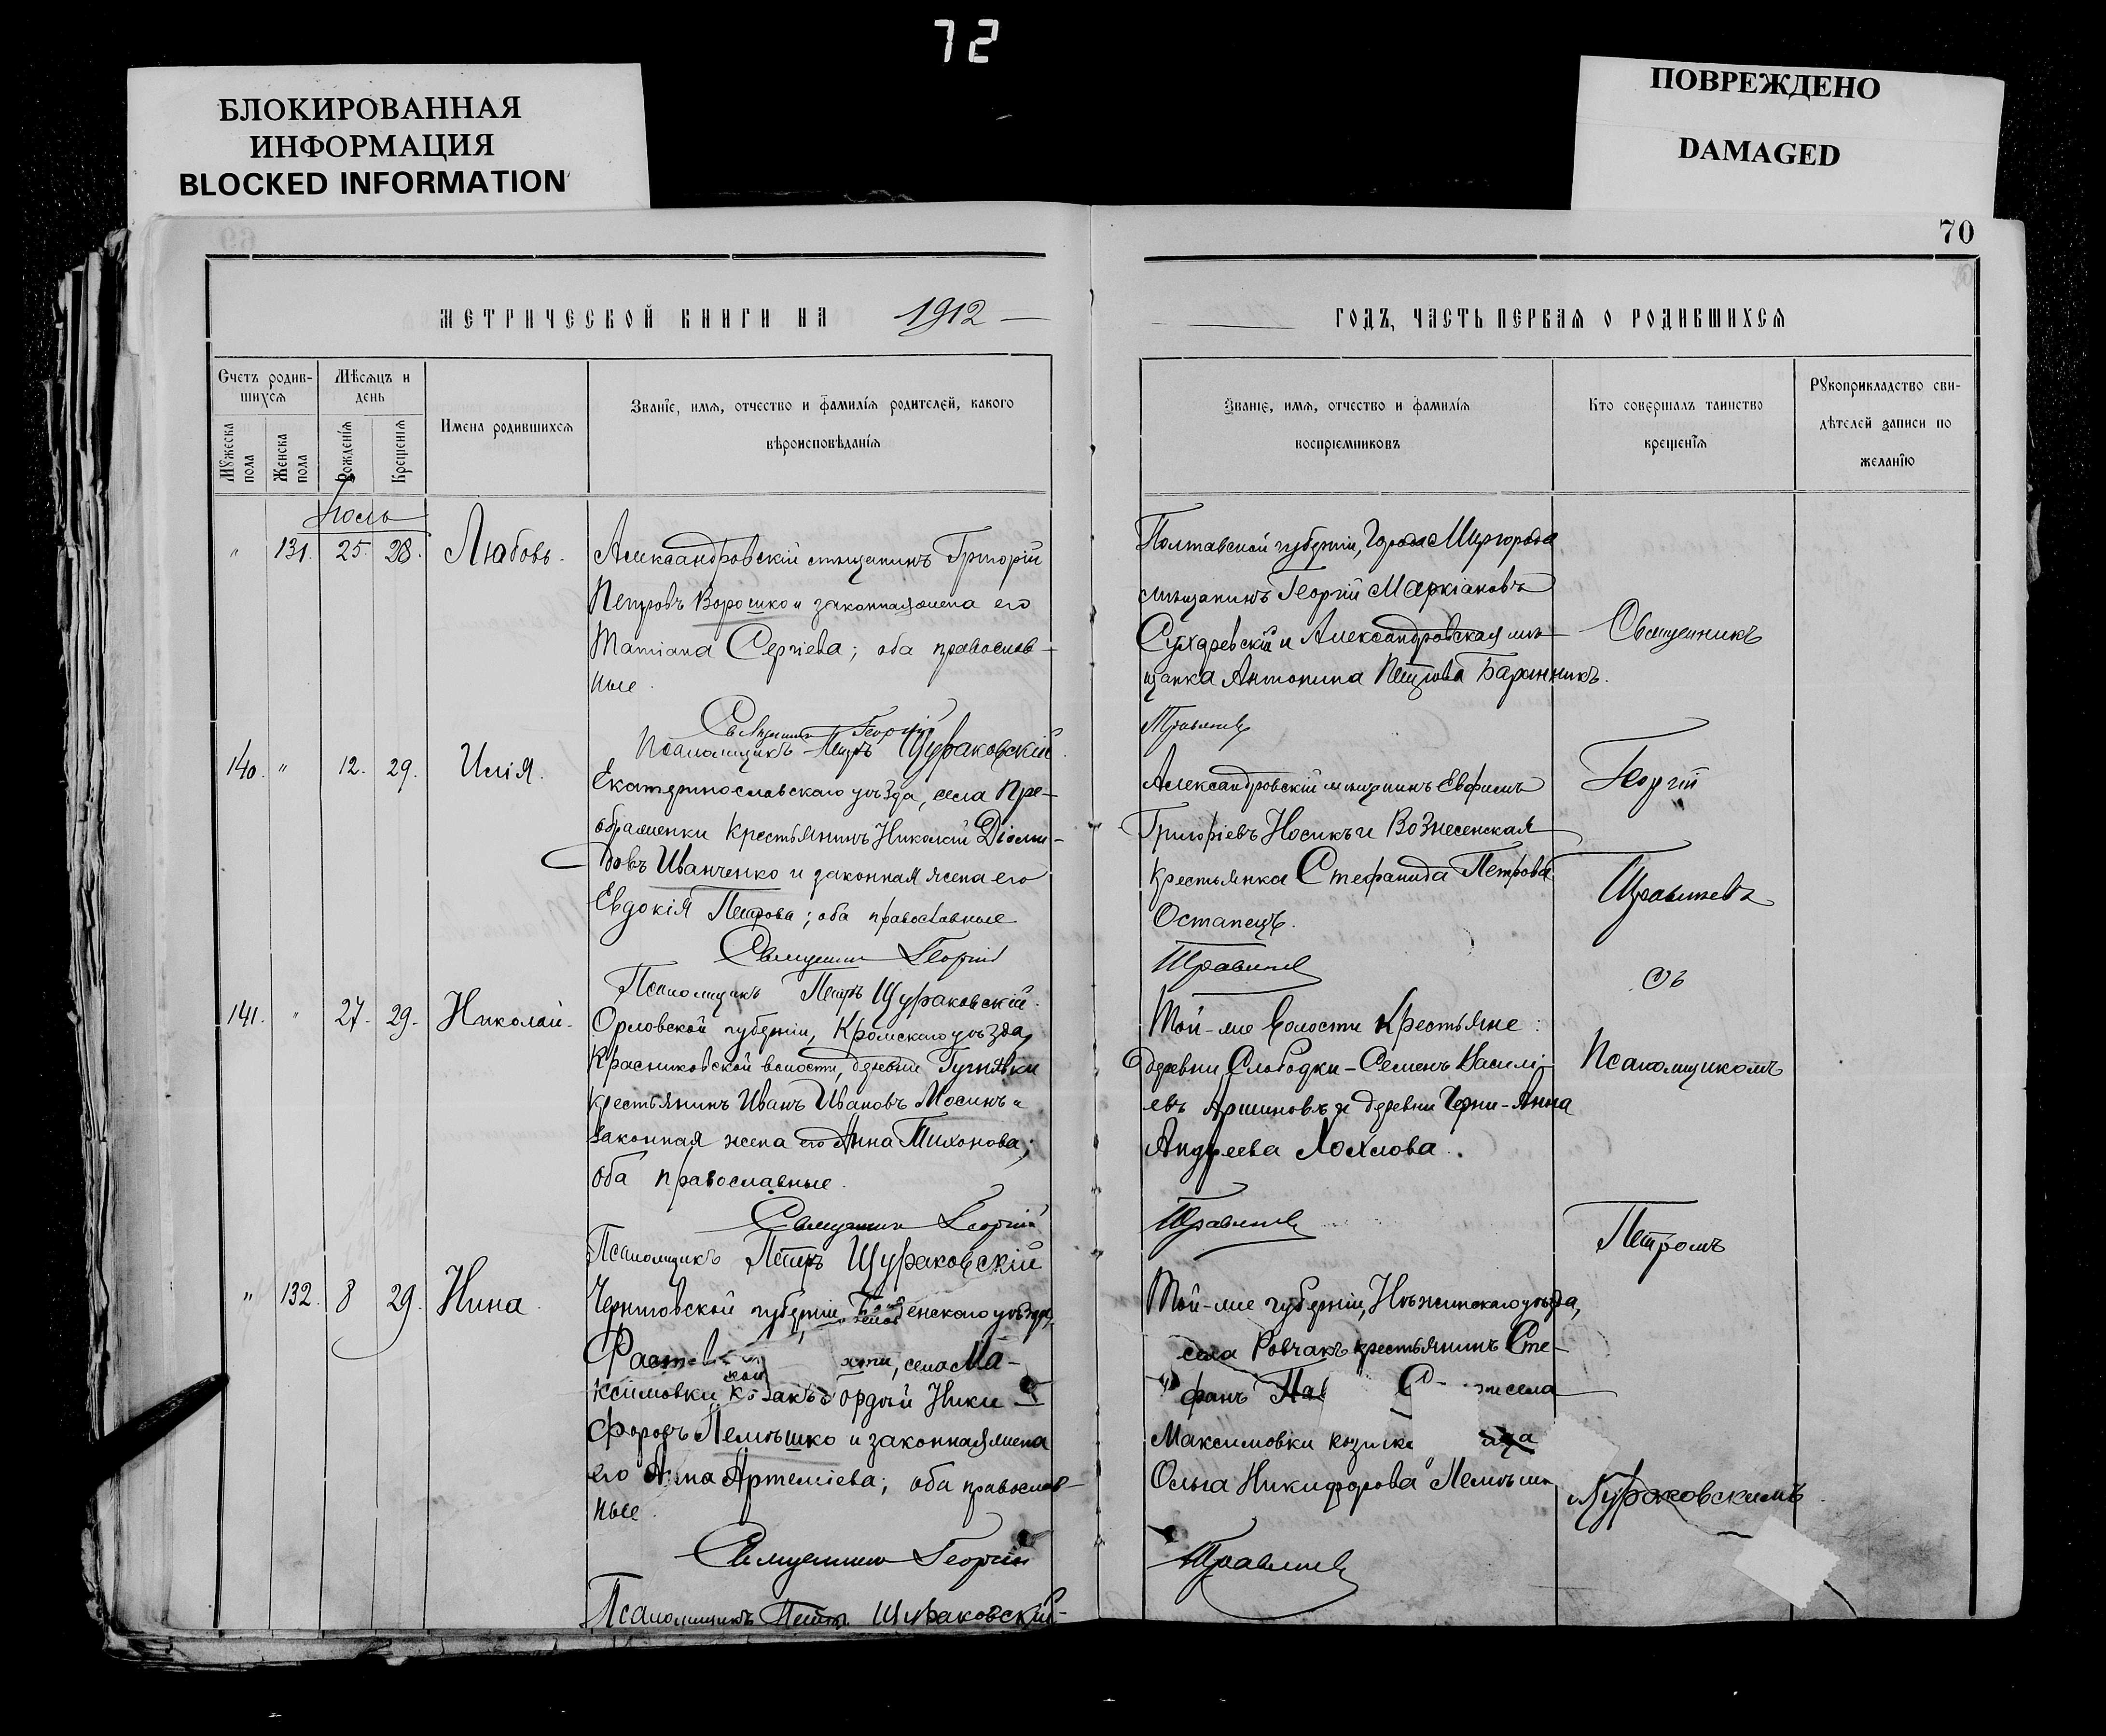 72
БЛОКИРОВАННАЯ
ИНФОРМАЦИЯ
BLOCKED INFORMATION
ПОВРЕЖДЕНО
DAMAGED
70
МЕТРИЧЕСКОЙ КНИГИ НА 1912
ГОДЪ, ЧАСТЬ ПЕРВАЯ О РОДИВШИХСЯ
Счетъ родив-
шихся
Мужеска
пола
Женска
пола
Мѣсяцъ и
день
Рожденія
Крещенія
Имена родившихся
Званіе, имя, отчество и фамилія родителей, какого
вѣроисповѣданія
Званіе, имя, отчество и фамилія
воспріемниковъ
Кто совершалъ таинство
крещенія
Рукоприкладство сви-
дѣтелей записи по
желанію
Іюль
" 131. 25. 28. Любовь.
Александровскій мѣщанинъ Григорій
Петровъ Ворошко и законная жена его
Татіана Сергіева; оба православ-
ные.
Священникъ Георгій
Псаломщикъ Петръ Щураковскій.
Полтавской губерніи, Города Миргорода
мѣщанинъ Георгій Маркіановъ
Сухаревскій и Александровская мѣ-
щанка Антонина Петрова Баранникъ.
140. " 12. 29. Илія.
Екатеринославскаго уѣзда, села Пре-
ображенки крестьянинъ Николай Діоми-
довъ Иванченко и законная жена его
Евдокія Петрова; оба православные
Священник Георгій
Псаломщикъ Петръ Щураковскій.
Александровскій мѣщанинъ Евфимъ
Григоріевъ Носикъ и Вознесенская
крестьянка Стефанида Петрова
Остапецъ.
141. " 27. 29. Николай.
Орловской губерніи, Кромскаго уѣзда,
Красниковской волости, деревни
крестьянинъ Иванъ Ивановъ Мосинъ и
законная жена его Анна Тихонова;
оба православные.
Священник Георгій
Псаломщикъ Петръ Щураковскій
Той-же волости крестьяне:
деревни Слободки - Семенъ Василі-
евъ Аршиновъ и деревни - Анна
Андреева Хохлова.
" 132. 8 29. Нина.
Черниговской губерніи, уѣзда,
села Ма-
ксимовки Ники-
форовъ Лемѣшко и законная жена
его Анна Артеміева; оба православ-
ные.
Священник Георгій
Псаломщикъ Петръ Щураковскій-
Той-же губерніи, Нѣжинскаго уѣзда,
села Ровчакъ крестьянинъ Сте-
фанъ села
Максимовки
Ольга Никифорова
Священникъ
Георгій
съ
Псаломщикомъ
Петромъ
Щураковскимъ